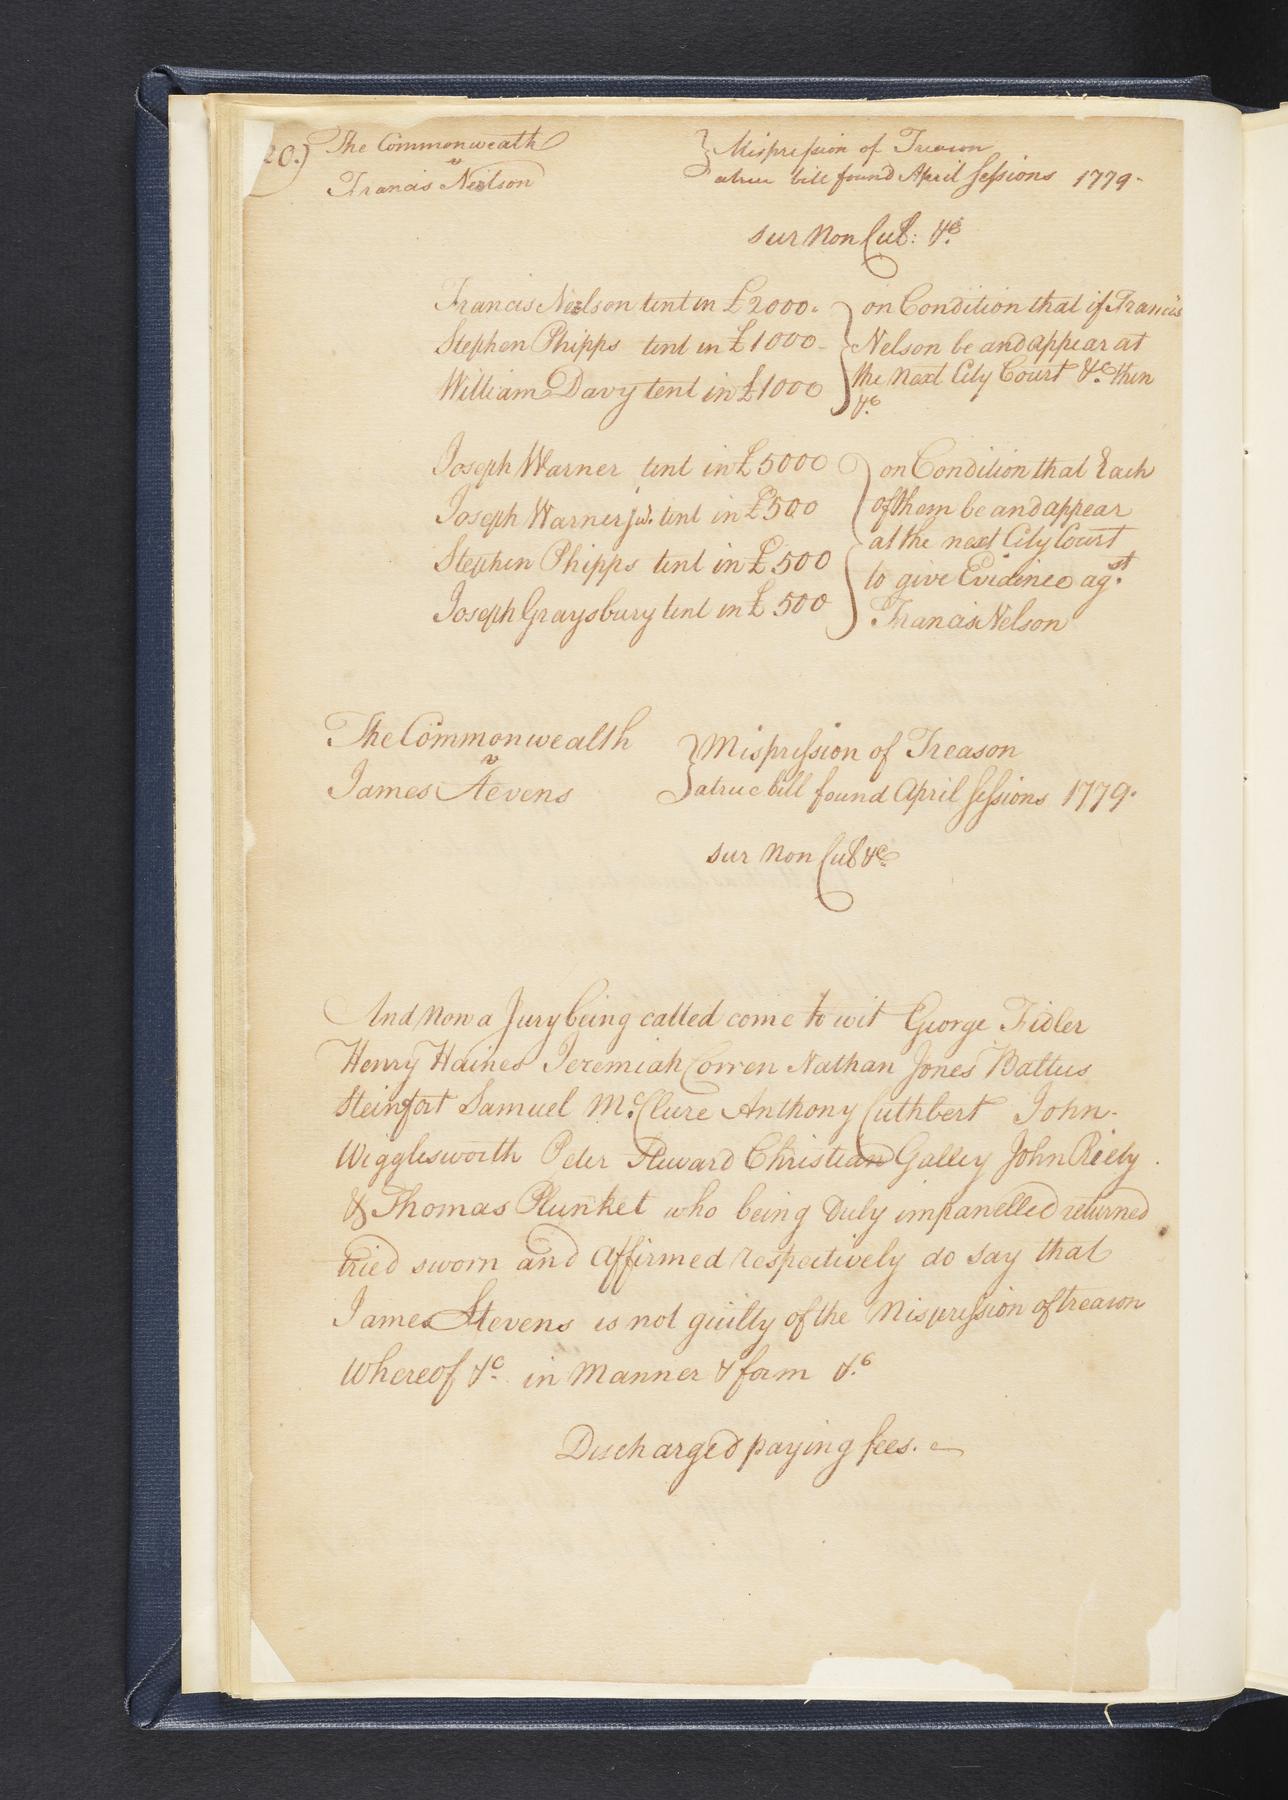 20.) The Commonweath } Misprission of Treason
v
Francis Neilson atrue bill found April Sessions 1779.
sur Non Cul: &c.
Francis Neilson tent in £2000. } on Condition that if Francis
Stephen Phipps tent in £1000 Nelson be and appear at
William Davy tent in £1000 the Next City Court &c. then
&c.
Joseph Warner tent in £5000 } on Condition that Each
Joseph Warner jur. tent in £500 of them be and appear
at the next City Court
Stephen Phipps tent in £500 to give Evidence agst.
Joseph Graysbury tent in £500 Francis Nelson
The Commonwealth } Misprission of Treason
v
James Stevens atrue bill found April Sessions 1779.
sur Non Cul &c.
And Now a Jury being called come to wit George Fidler
Henry Haines Jeremiah Corren Nathan Jones Baltus
Steinfort Samuel McClure Anthony Cuthbert John
Wigglesworth Peter Steward Christian Galley John Riely
& Thomas Plunket who being Duly impanelled returned
tried sworn and affirmed respectively do say that
James Stevens is not guilty of the Misprission of treason
Whereof &c. in Manner & form &c.
Discharged paying fees.